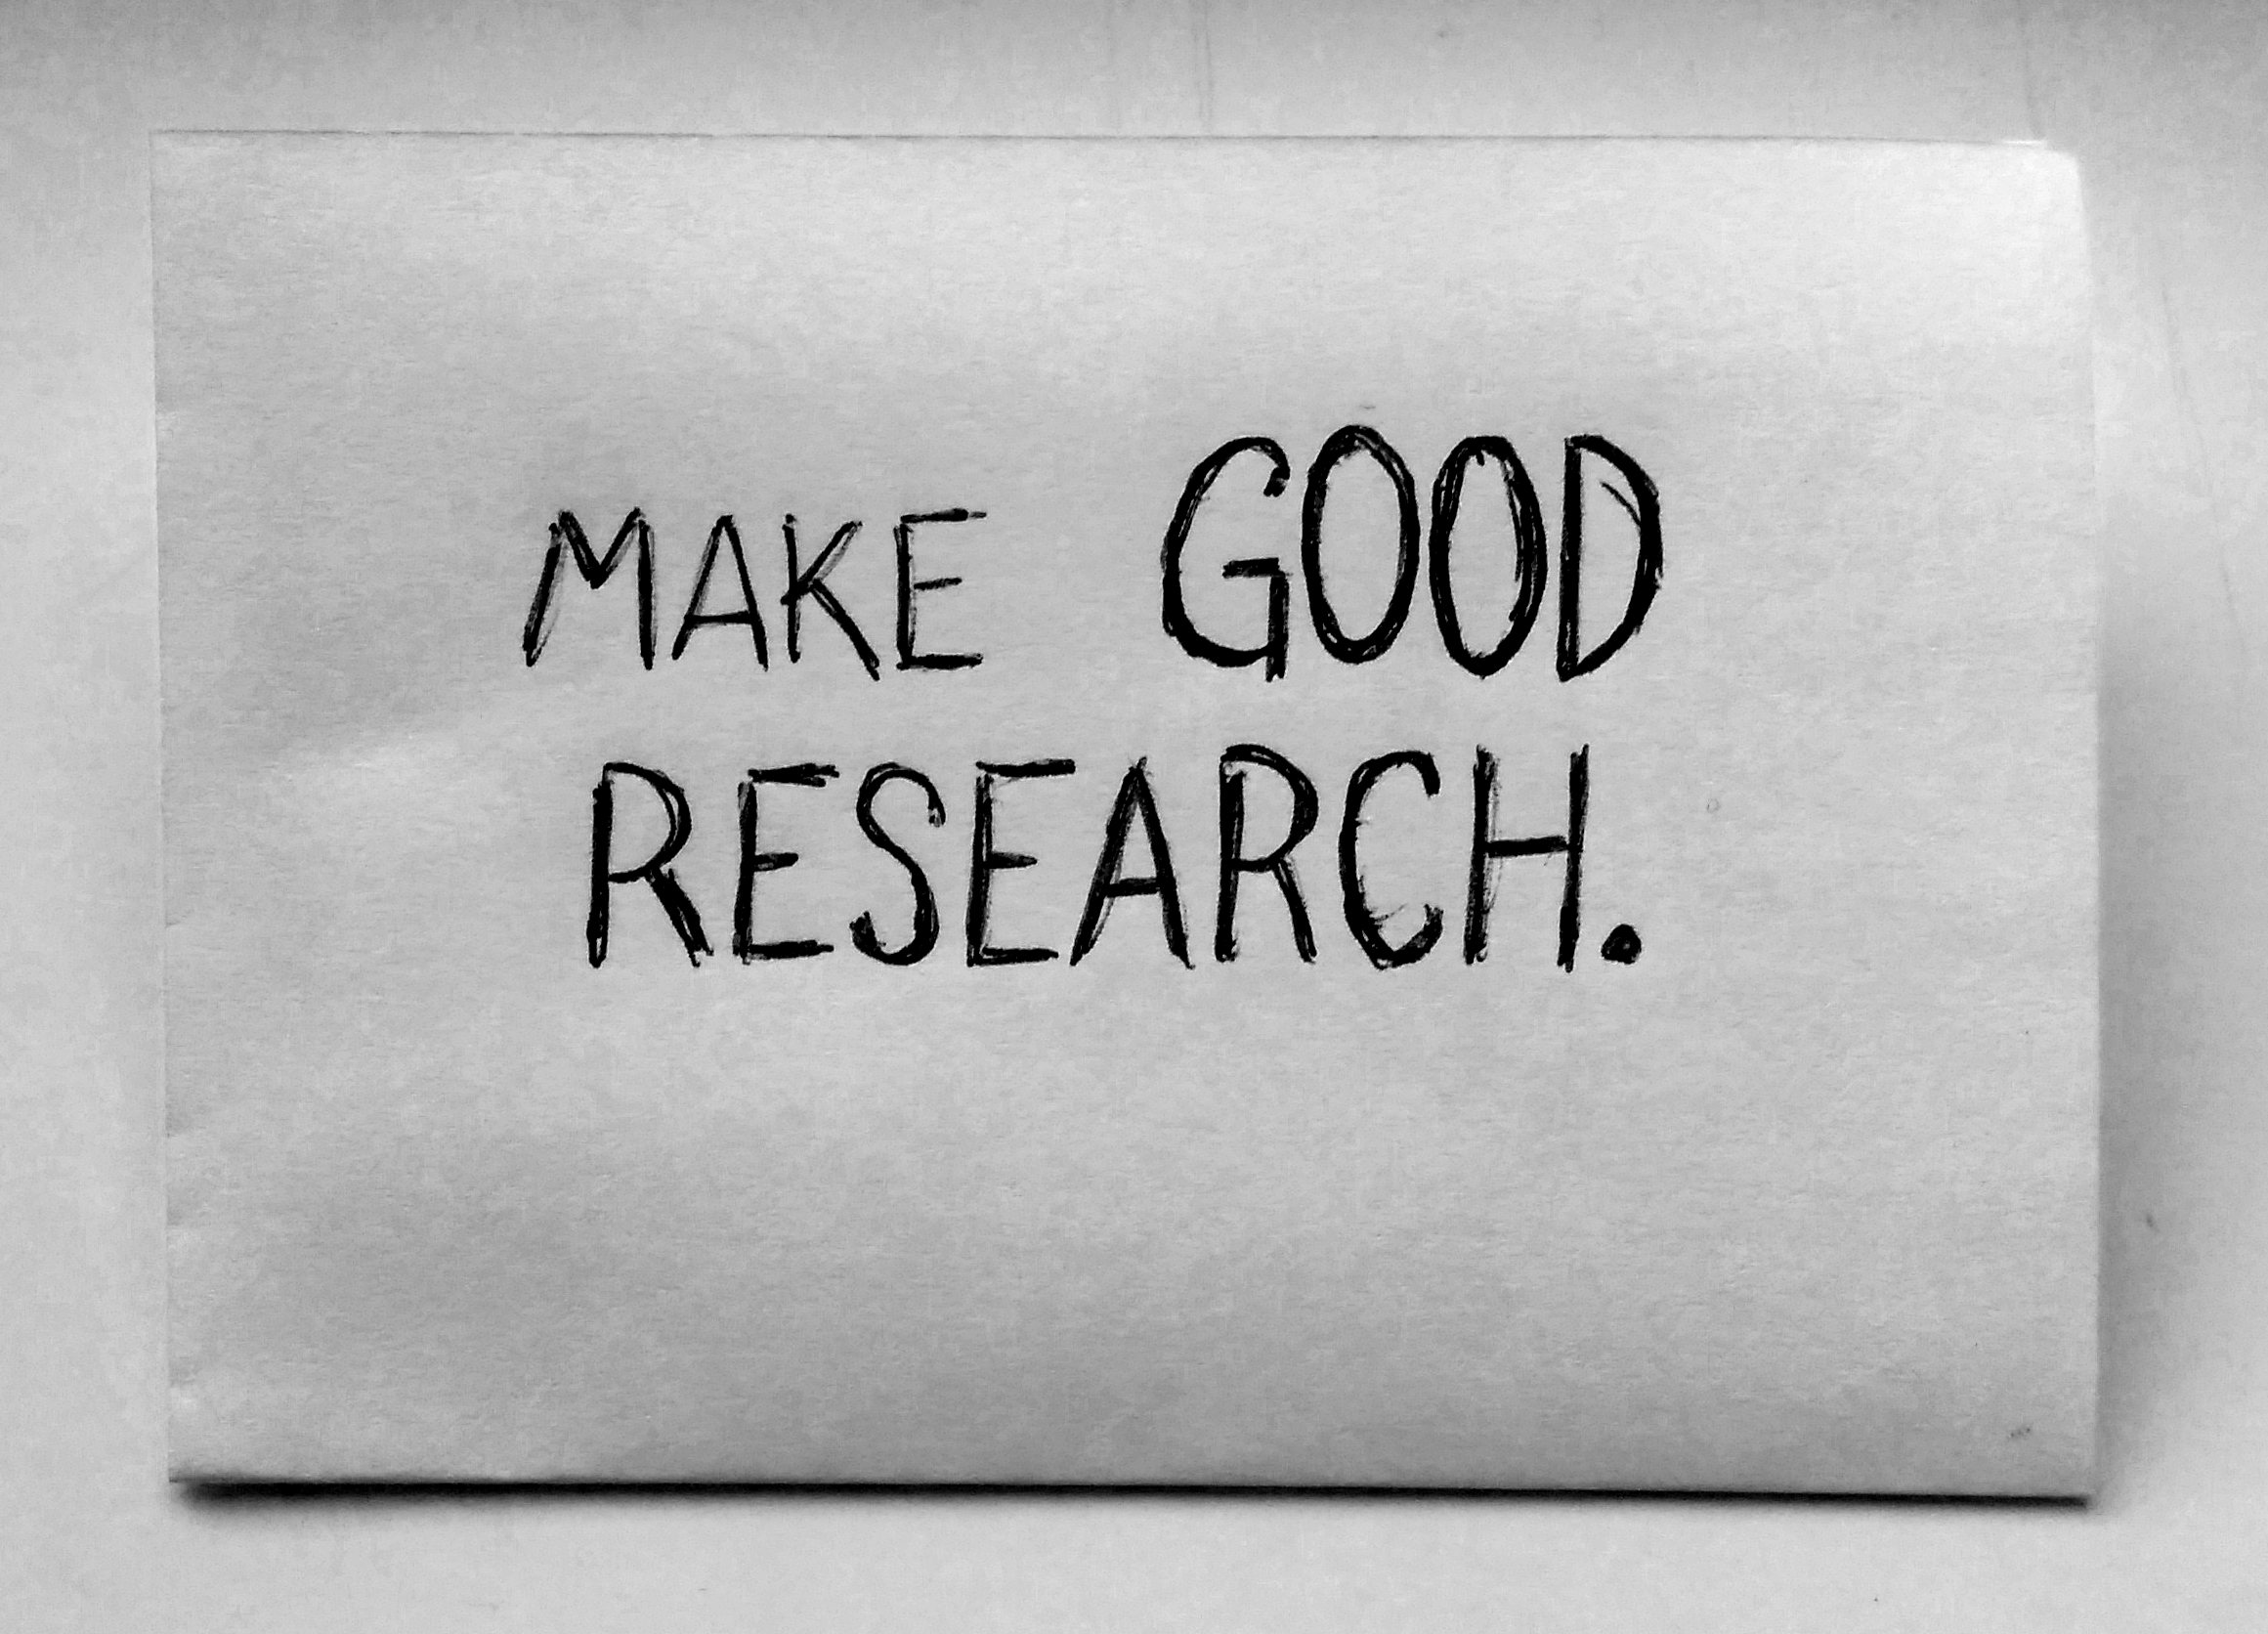 MAKE GOOD
RESEARCH.